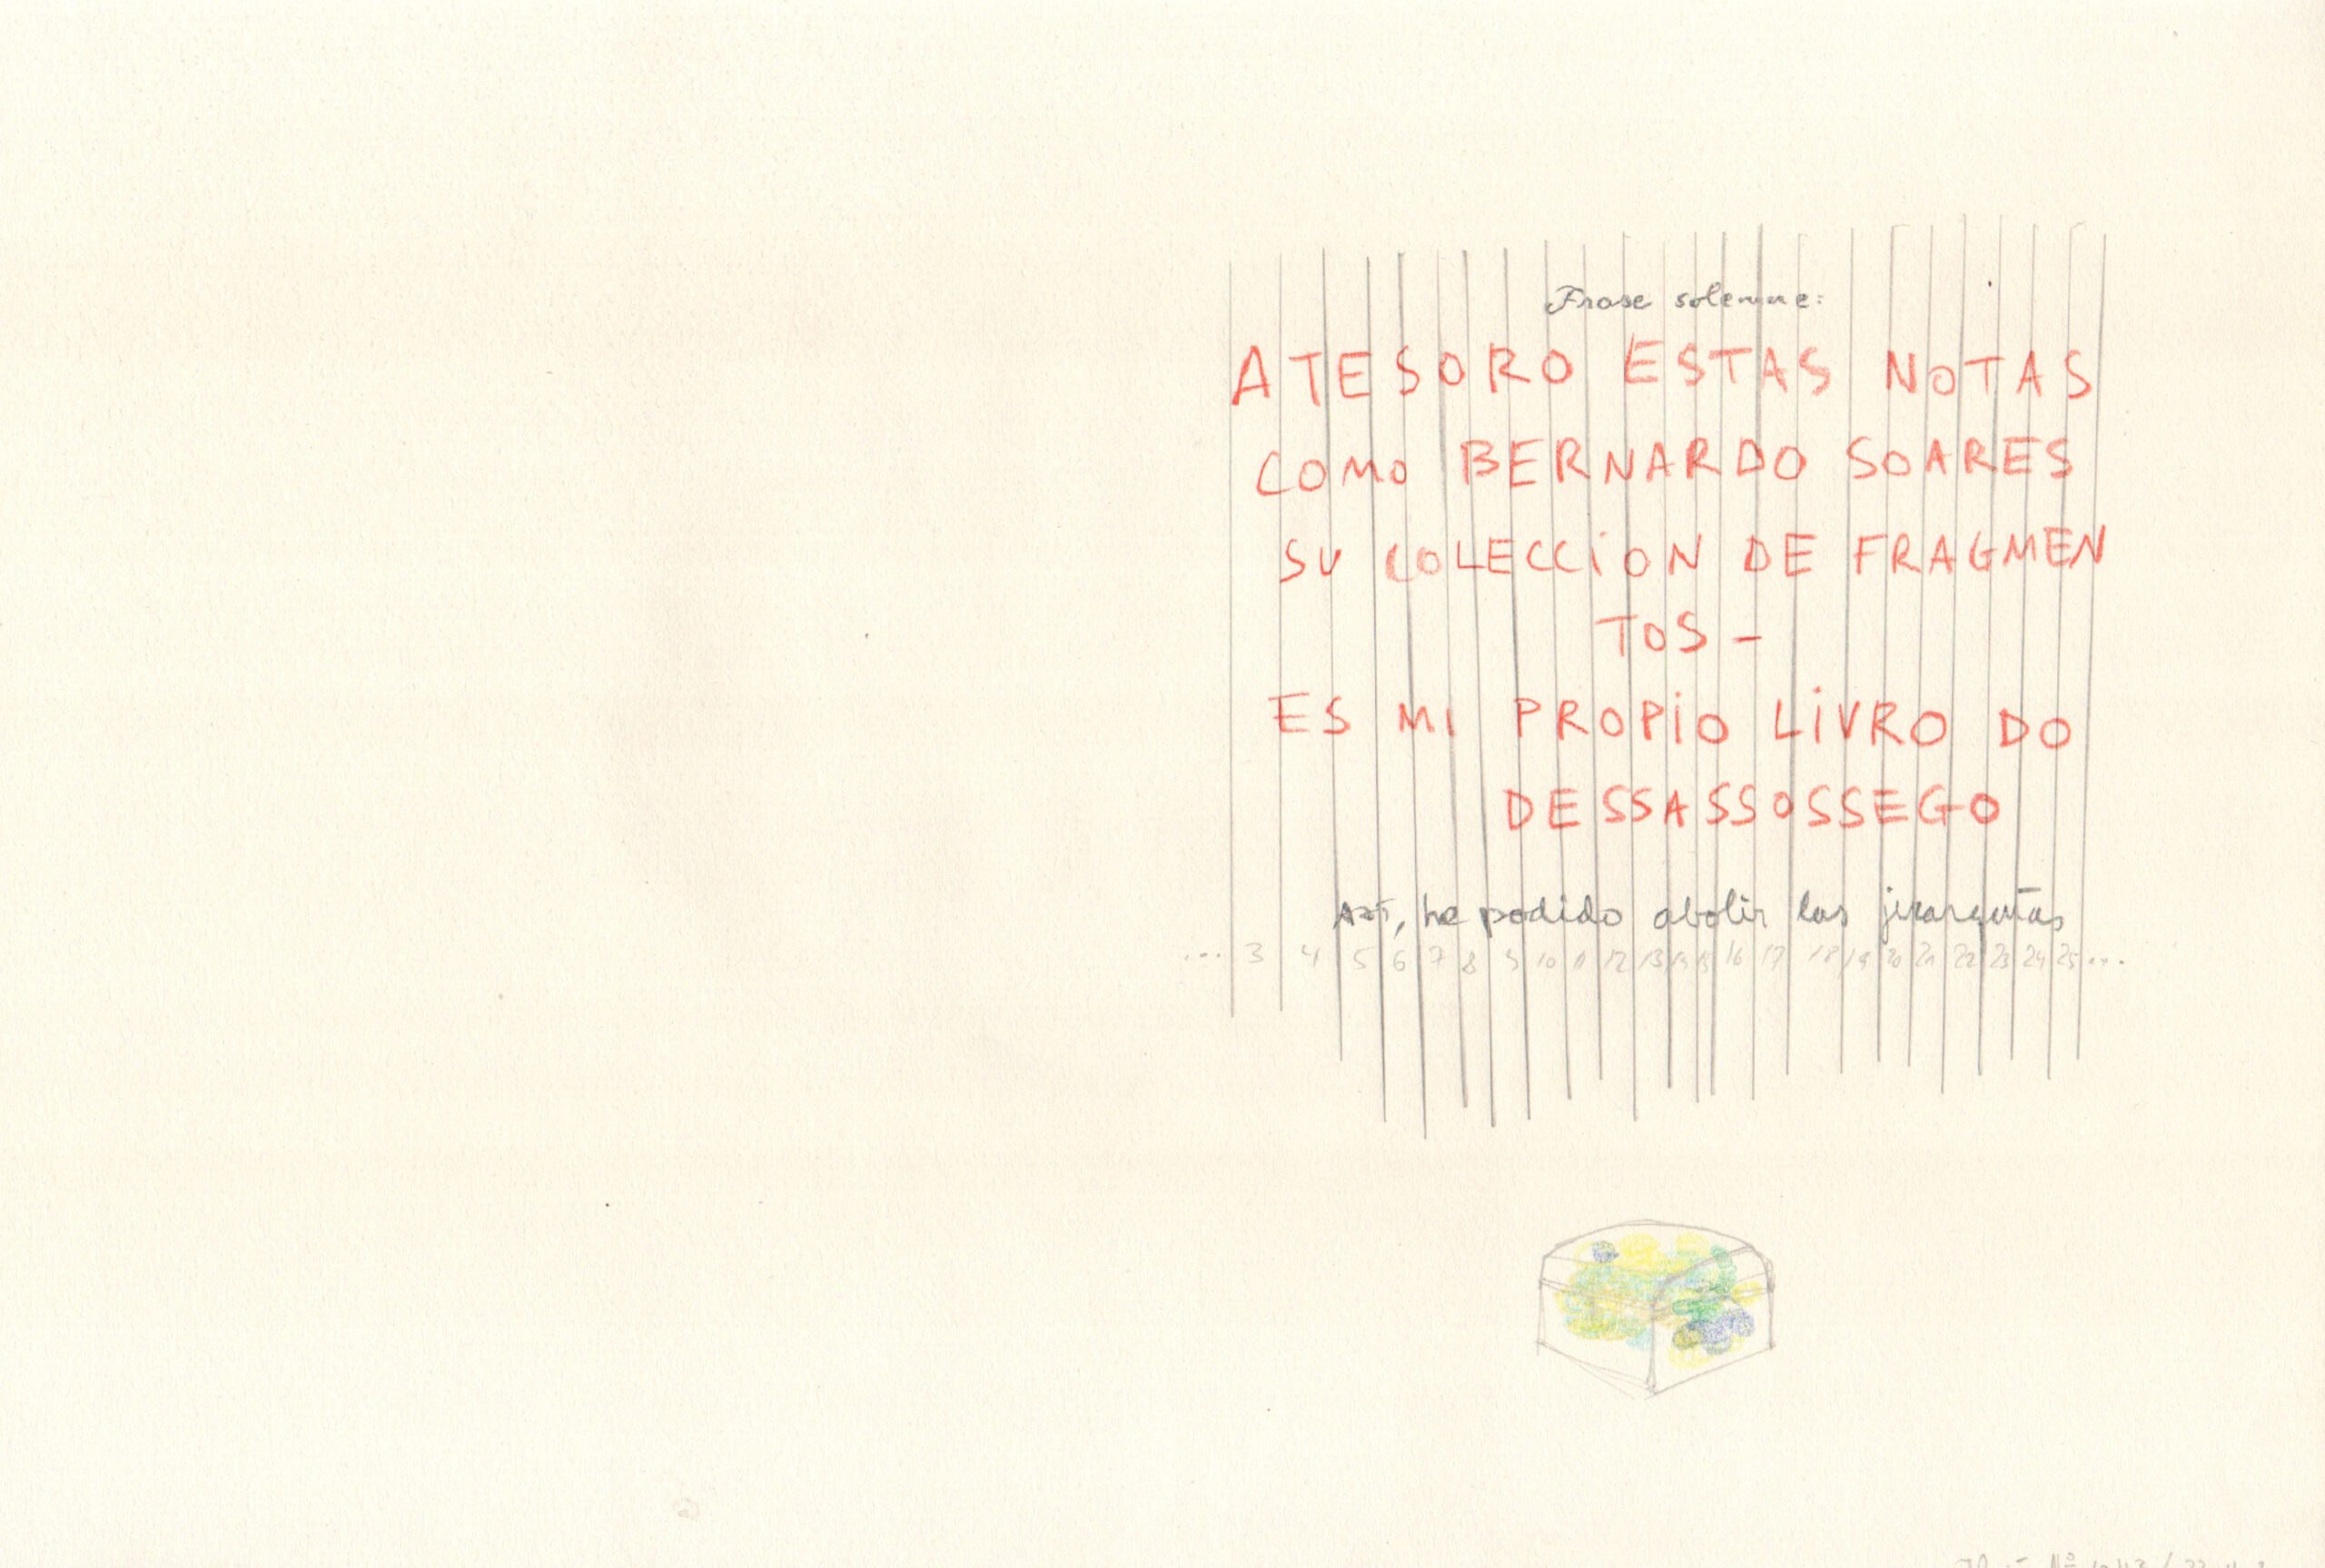 Frase solemne:
ATESORO ESTAS NOTAS
COMO BERNARDO SOARES
SU COLECCiON DE FRAGMEN
TOS –
ES Mi PROPiO LiVRO DO
DESSASSOSSEGO
Así, he podido abolir las jerarquías
... 3 4 5 6 7 8 9 10 11 12 13 14 15 16 17 18 19 20 21 22 23 24 25 ...